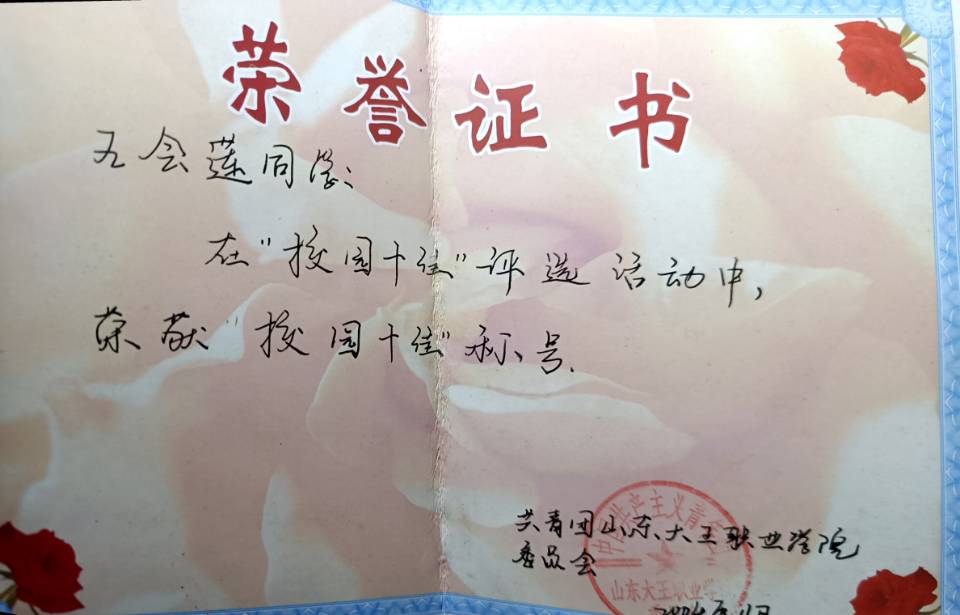 荣誉证书
会莲同学：
在"校园十佳"评选活动中，
荣获"校园十佳"称号.
共青团山东大王职业学院
委员会
山东大王职业学